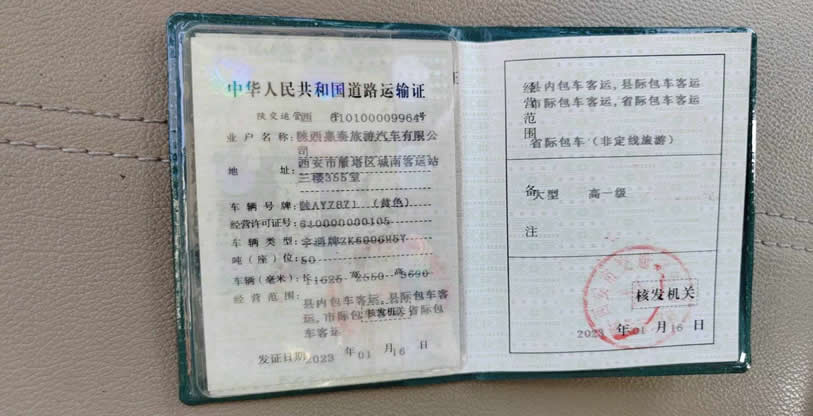 中华人民共和国道路运输证
陕交运管西 字610100009964号
业户名称:陕西嘉泰旅游汽车有限公
司
地 址:西安市雁塔区城南客运站
三楼355室
车辆号牌:陕AYZ871 (黄色)
经营许可证号:610000000105
车辆类型:宇通牌
吨(座)位:50
车辆(毫米):长 11625 宽 2550 高 3690
经营范围:县内包车客运,县际包车客
运,市际包车客运,省际包
车客运
核发机关
发证日期2023 年01 月16 日
经营范围
县内包车客运,县际包车客运
市际包车客运,省际包车客运
省际包车(非定线旅游)
备注
大型 高一级
核发机关
2023 年01 月16 日